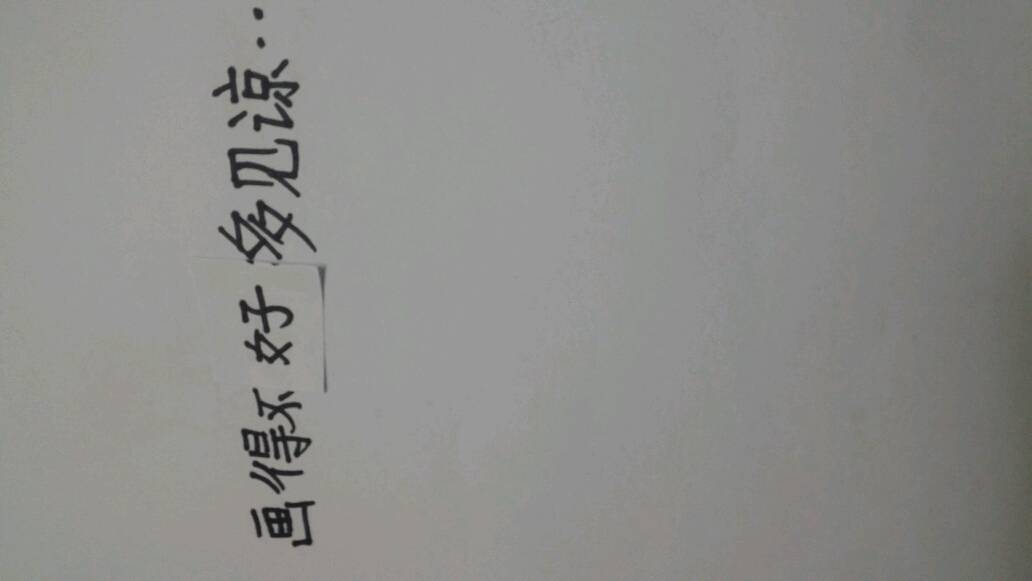 画得不好多见谅··